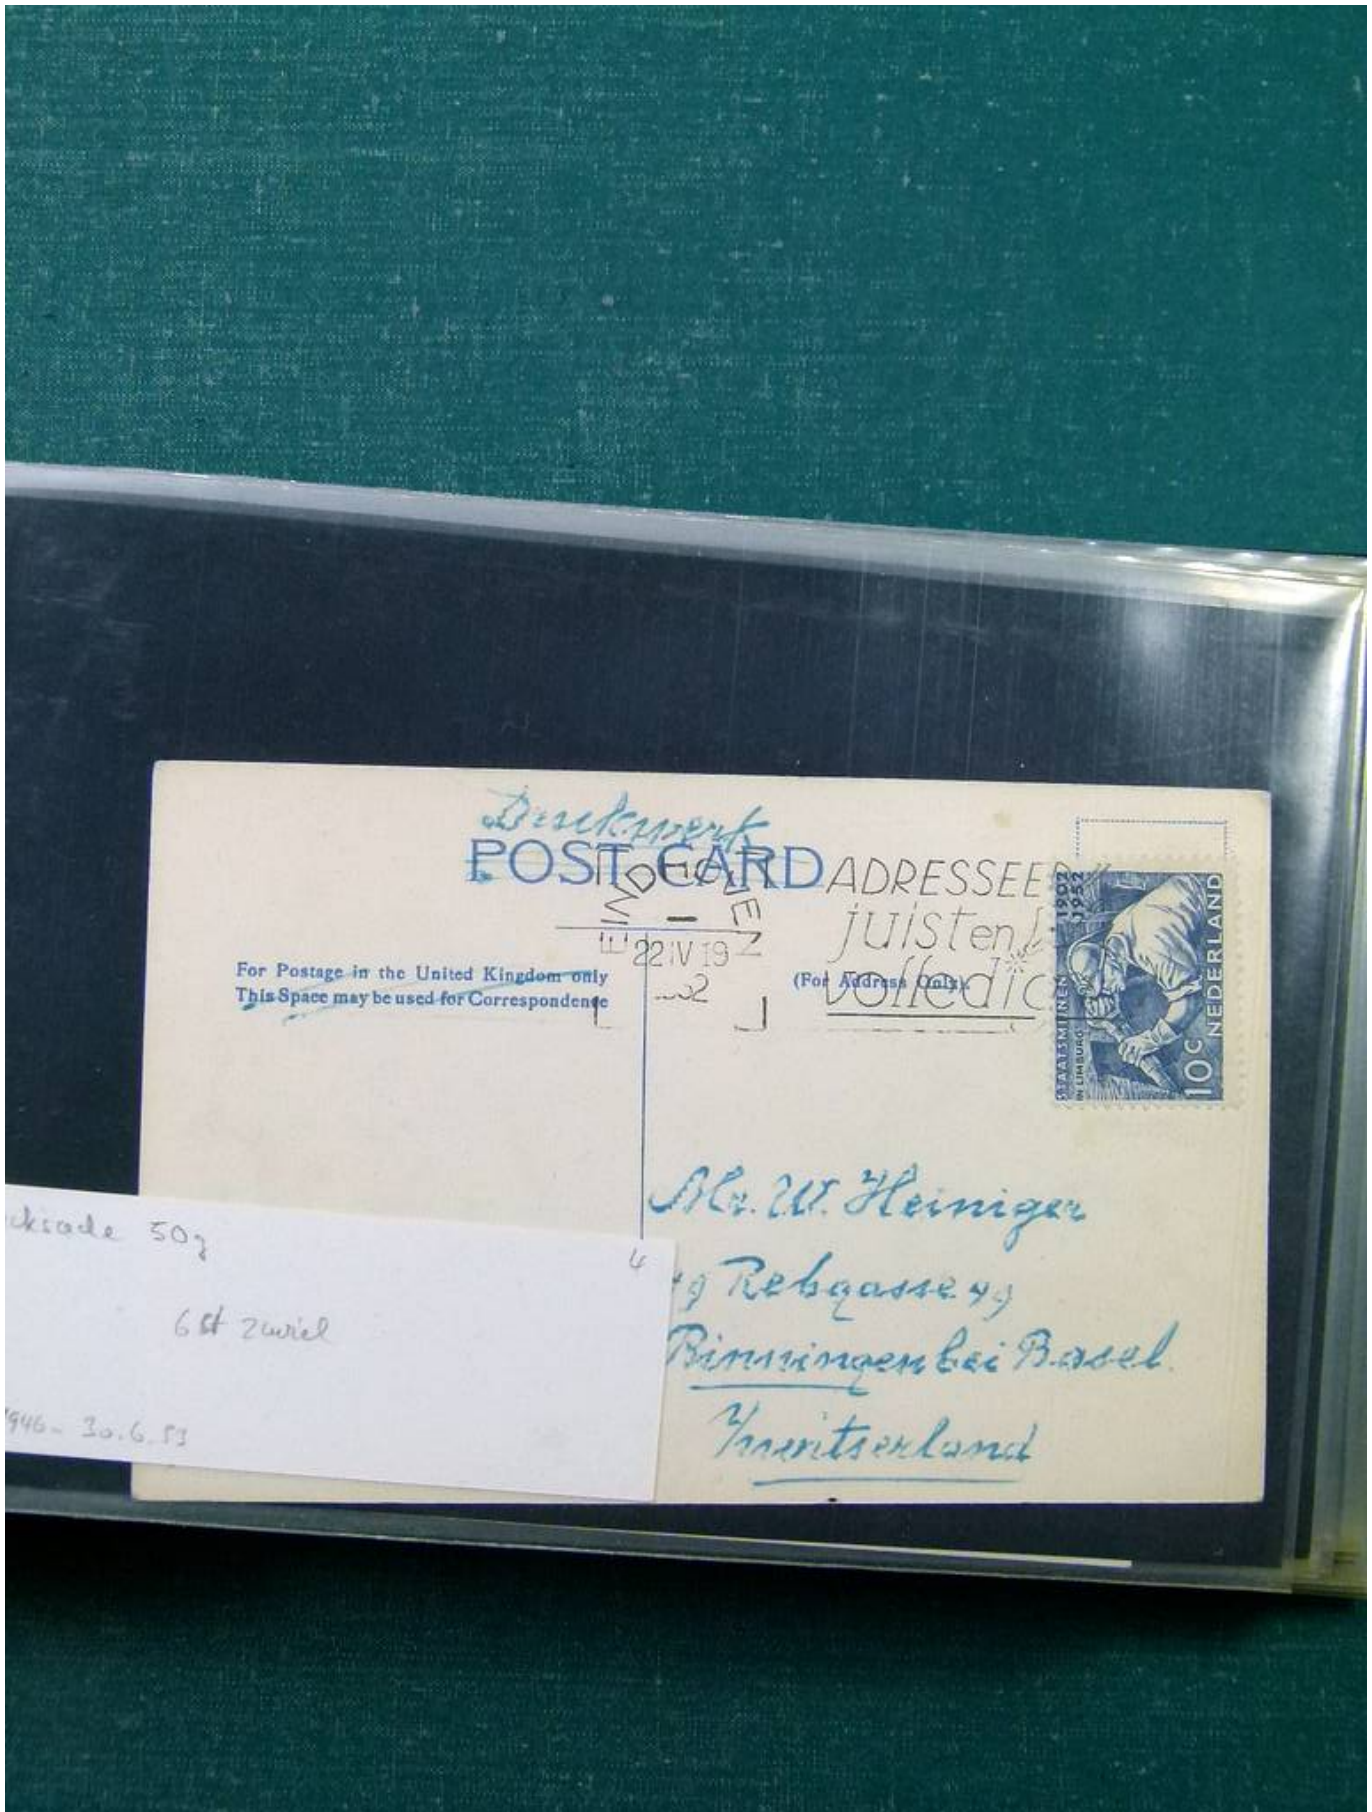 Drukwerk
POST CARD
EINDHOVEN
22 IV 19
52
ADRESSEE
juist en
volledig
For Postage in the United Kingdom only
This Space may be used for Correspondence
(For Address Only).
STAATSMIJNEN 1902
IN LIMBURG 1952
10 C NEDERLAND
Mr. W. Heiniger
49 Rebgasse 49
Binningen bei Basel.
Zwitserland
cksade 50g
4
6 ct zuviel
1946 - 30.6.53